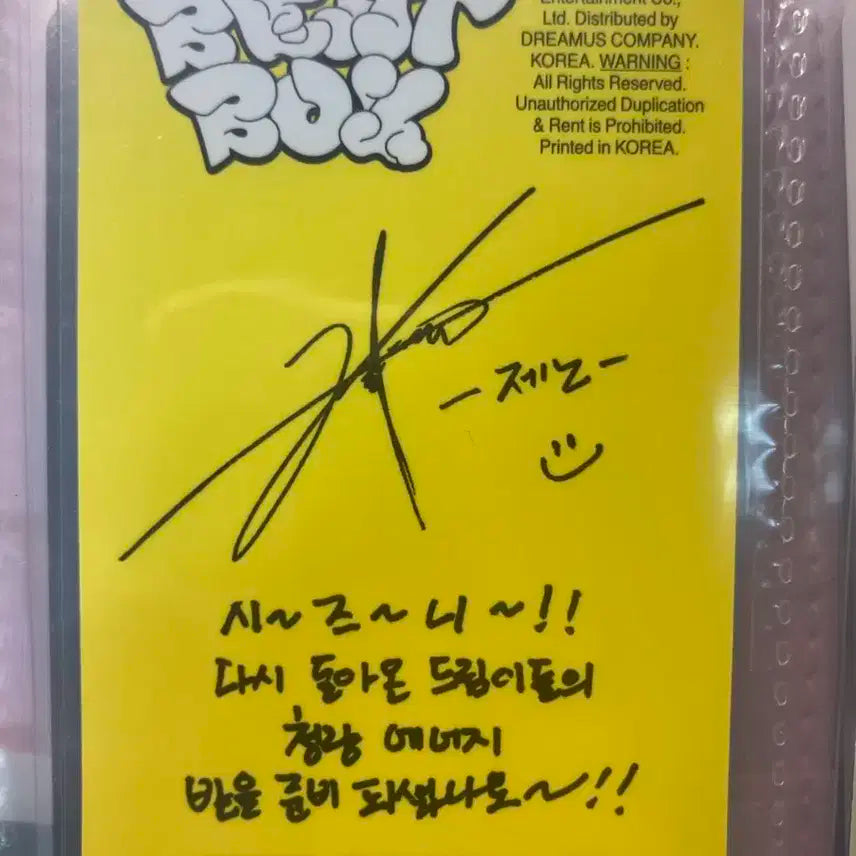 BEAT
BOX
Entertainment Co.,
Ltd. Distributed by
DREAMUS COMPANY.
KOREA. WARNING :
All Rights Reserved.
Unauthorized Duplication
& Rent is Prohibited.
Printed in KOREA.
-제노-
시~즈~니~!!
다시 돌아온 드림이들의
청량 에너지
받을 준비 되셨나요~!!